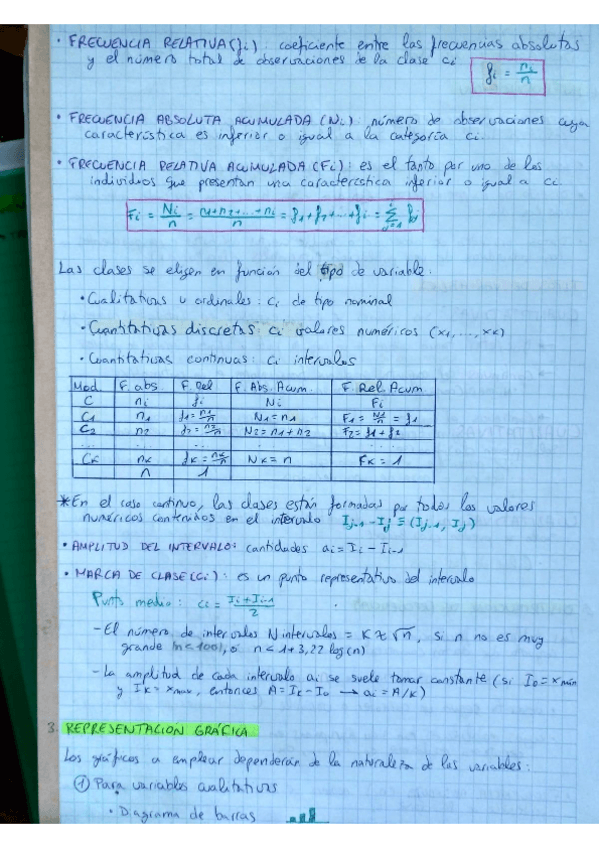 · FRECUENCIA RELATIVA (fi): coeficiente entre las frecuencias absolutas
y el número total de observaciones de la clase ci
fi = ni/n
· FRECUENCIA ABSOLUTA ACUMULADA (Ni) número de observaciones cuya
característica es inferior o igual a la categoría ci.
· FRECUENCIA RELATIVA ACUMULADA (Fi): es el tanto por uno de los
individuos que presentan una característica inferior o igual a ci
Fi = Ni/n = n1+n2+...+ni/n = f1+f2+...+fi = Σ fj
Las clases se eligen en función del tipo de variable.
· Cualitativas u ordinales: ci de tipo nominal
· Cuantitativas discretas: ci valores numéricos (x1,..., xk)
· Cuantitativas continuas: ci intervalos
Mod. F. abs. F. Rel F. Abs. Acum. F. Rel. Acum
C ni fi Ni Fi
C1 n1 f1=n1/n N1=n1 F1=N1/n=f1
C2 n2 f2=n2/n N2=n1+n2 F2=f1+f2
... ... ... ... ...
Ck nk fk=nk/n Nk=n Fk=1
n 1
*En el caso continuo, las clases están formadas por todos los valores
numéricos contenidos en el intervalo Ij-1-Ij ≡ (Ij-1, Ij)
· AMPLITUD DEL INTERVALO: cantidades ai = Ii - Ii-1
· MARCA DE CLASE (ci): es un punto representativo del intervalo
Punto medio: ci = Ii+Ii-1/2
- El número de intervalos N intervalos = K ≈ √n, si n no es muy
grande (n<100), o n<1+3,22 log(n)
- La amplitud de cada intervalo ai se suele tomar constante (si I0=xmin
y Ik=xmax, entonces A=Ik-I0 → ai=A/k)
3. REPRESENTACIÓN GRÁFICA
Los gráficos a emplear dependerán de la naturaleza de las variables:
① Para variables cualitativas
· Diagrama de barras